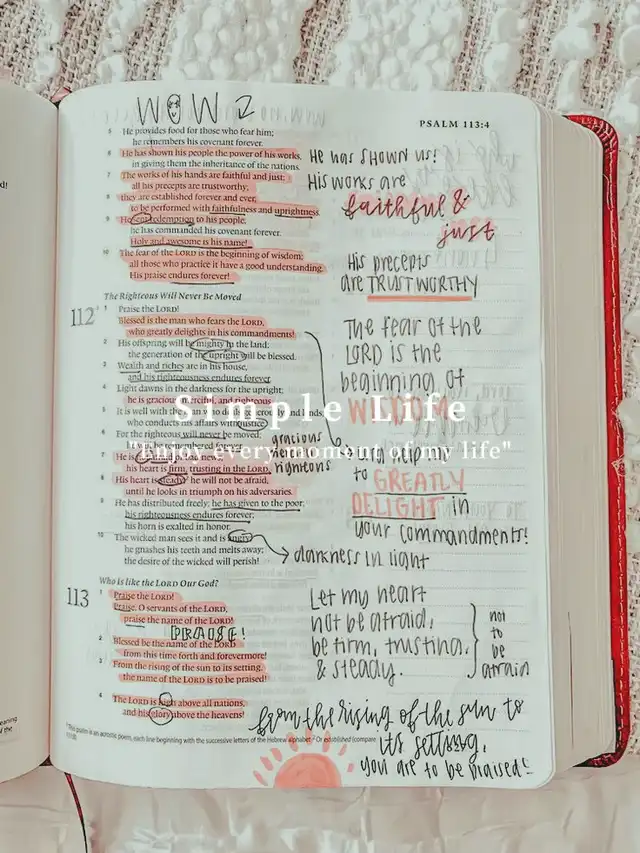 WOW
PSALM 113:4
5 He provides food for those who fear him;
he remembers his covenant forever.
6 He has shown his people the power of his works,
in giving them the inheritance of the nations.
7 The works of his hands are faithful and just;
all his precepts are trustworthy;
8 they are established forever and ever,
to be performed with faithfulness and uprightness.
9 He sent redemption to his people;
he has commanded his covenant forever.
Holy and awesome is his name!
10 The fear of the LORD is the beginning of wisdom;
all those who practice it have a good understanding.
His praise endures forever!
The Righteous Will Never Be Moved
112 1 Praise the LORD!
Blessed is the man who fears the LORD,
who greatly delights in his commandments!
2 His offspring will be mighty in the land;
the generation of the upright will be blessed.
3 Wealth and riches are in his house,
and his righteousness endures forever.
4 Light dawns in the darkness for the upright;
he is gracious, merciful, and righteous.
5 It is well with the man who deals generously and lends,
who conducts his affairs with justice.
6 For the righteous will never be moved;
he will be remembered forever.
7 He is not afraid of bad news;
his heart is firm, trusting in the LORD.
8 His heart is steady; he will not be afraid,
until he looks in triumph on his adversaries.
9 He has distributed freely; he has given to the poor;
his righteousness endures forever;
his horn is exalted in honor.
10 The wicked man sees it and is angry;
he gnashes his teeth and melts away;
the desire of the wicked will perish!
Who Is like the LORD Our God?
113 1 Praise the LORD!
Praise, O servants of the LORD,
praise the name of the LORD!
PRAISE!
2 Blessed be the name of the LORD
from this time forth and forevermore!
3 From the rising of the sun to its setting,
the name of the LORD is to be praised!
4 The LORD is high above all nations,
and his glory above the heavens!
He has SHOWN us!
His works are
faithful &
just
His precepts
are TRUSTWORTHY
The fear of the
LORD is the
beginning of
WISDOM
Simple Life
"Enjoy every moment of my life"
gracious
righteous
to GREATLY
DELIGHT in
your commandments!
darkness in light
Let my heart
not be afraid,
be firm, trusting,
& steady.
not
to
be
afraid
from the rising of the sun to
its setting,
you are to be praised!